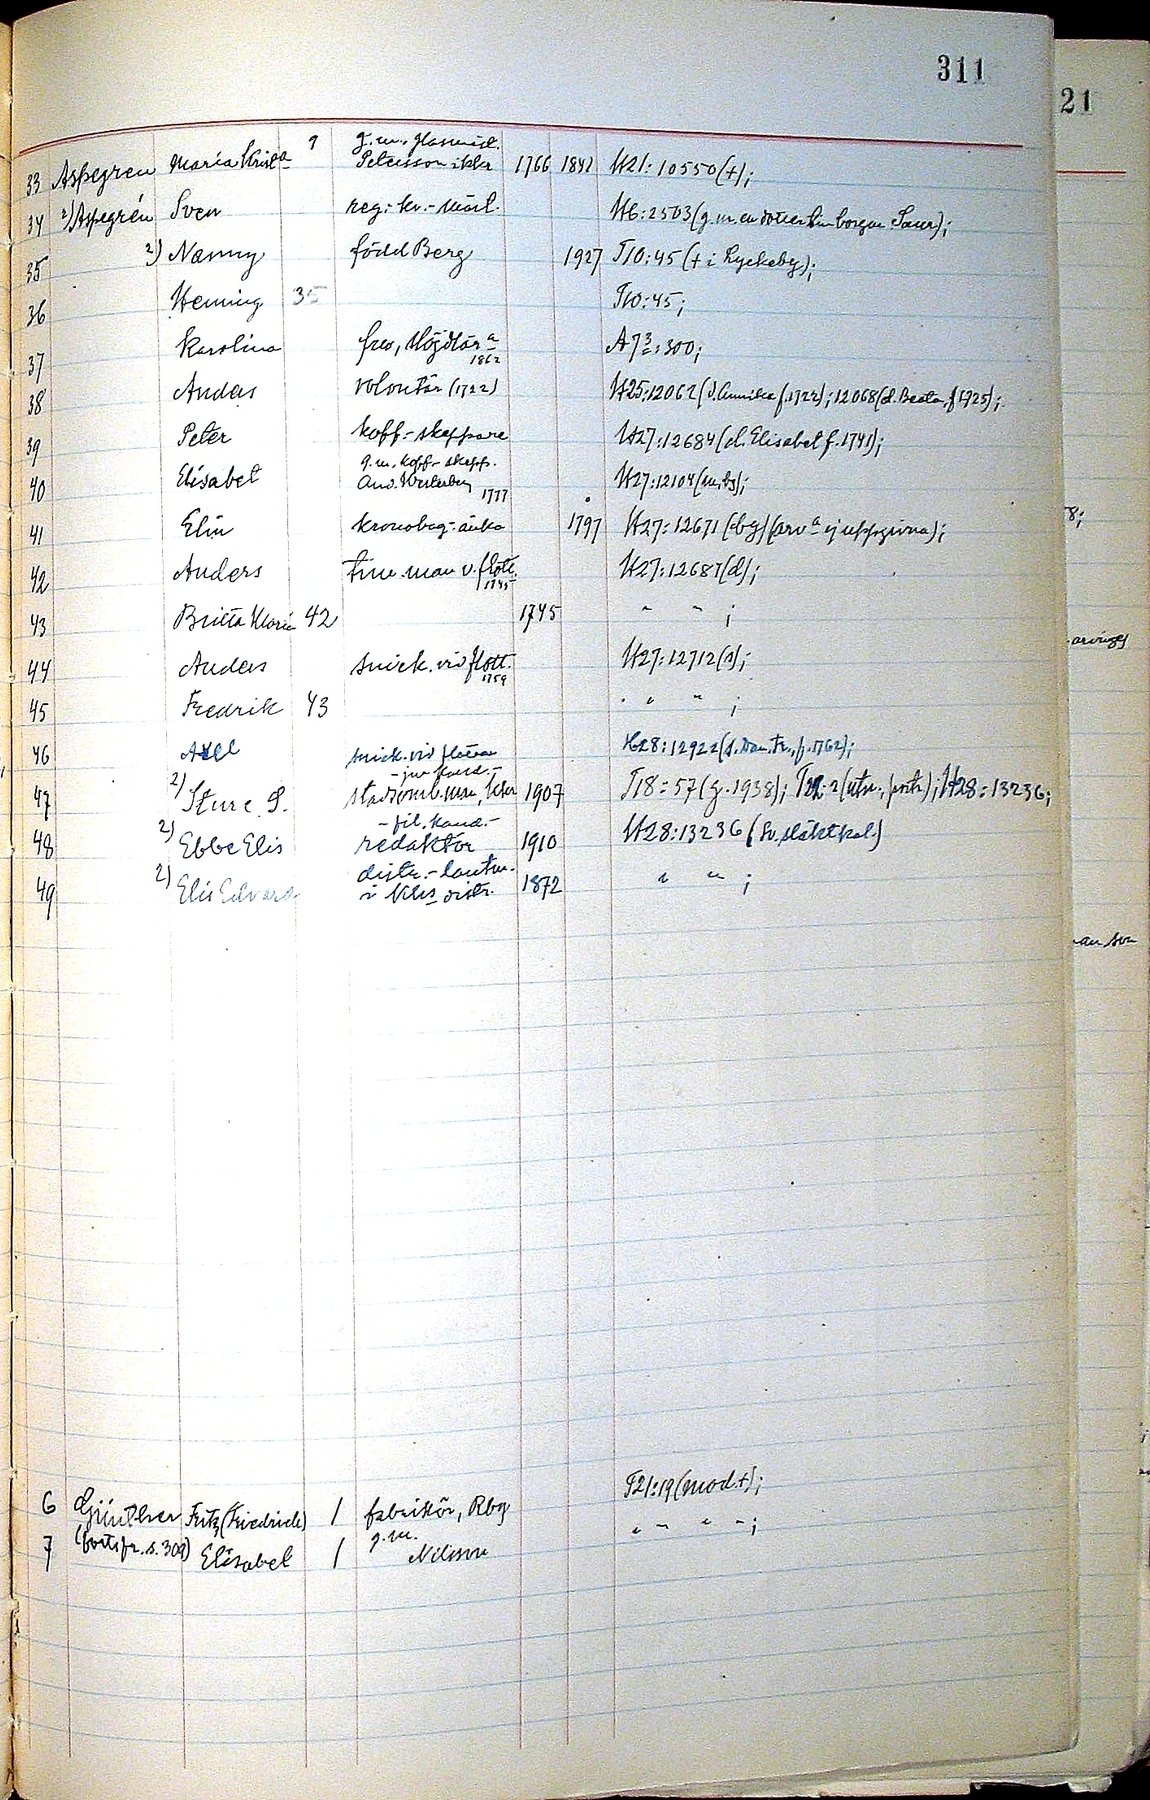 311
21
g.m. glasmäst.
33 Aspegren Maria Krist-a 9 Petersson i Kkr 1766 1841 H21: 10550 (+);
34 2) Aspegrén Sven reg:-kv.-mäst. H6: 2503 (g.m. en dotter borgm. Saur);
35 2) Nanny född Berg 1927 T10: 45 (+ i Lyckeby);
36 Henning 35 T10: 45;
37 Karolina frw, Höjdlär-a 1862 A7 3: 300;
38 Anders volontär (1722) H25: 12062 (d. Annika f. 1722); 12068 (d. Beata, f 1725);
39 Peter koff.-skeppare H27: 12684 (d. Elisabet f. 1741);
g.m. koff.-skepp.
40 Elisabet And. Westerberg 1777 H27: 12104
41 Elin kronobag.-änka 1797 H27: 12671 (bg) (arv-a ej uppgivna);
42 Anders tim.man v. flott. 1745 H27: 12687 (d);
43 Britta Maria 42 1745 " " ;
44 Anders snick. vid flott. 1759 H27: 12712 (s);
45 Fredrik 43 " " ;
46 Axel snick. vid flottan H28: 12922 f. 1762);
- jur. kand. -
47 2) Sture S. stadsomb.man, Kkr 1907 T18: 57 (g. 1938); T22: 2 (utn., portr.); H28: 13236;
- fil. kand. -
48 2) Ebbe Elis redaktör 1910 H28: 13236 (Sv. släktkal.)
distr.-lantm.
49 2) Elis Edvard i Kkrs distr. 1872 " " ;
8;
arvinge
son
6 Günther Fritz (Friedrich) 1 fabrikör, Rby T21: 19 (mod. +);
(forts. fr. s. 309) g.m.
7 Elisabet 1 Nilsson " " " " ;